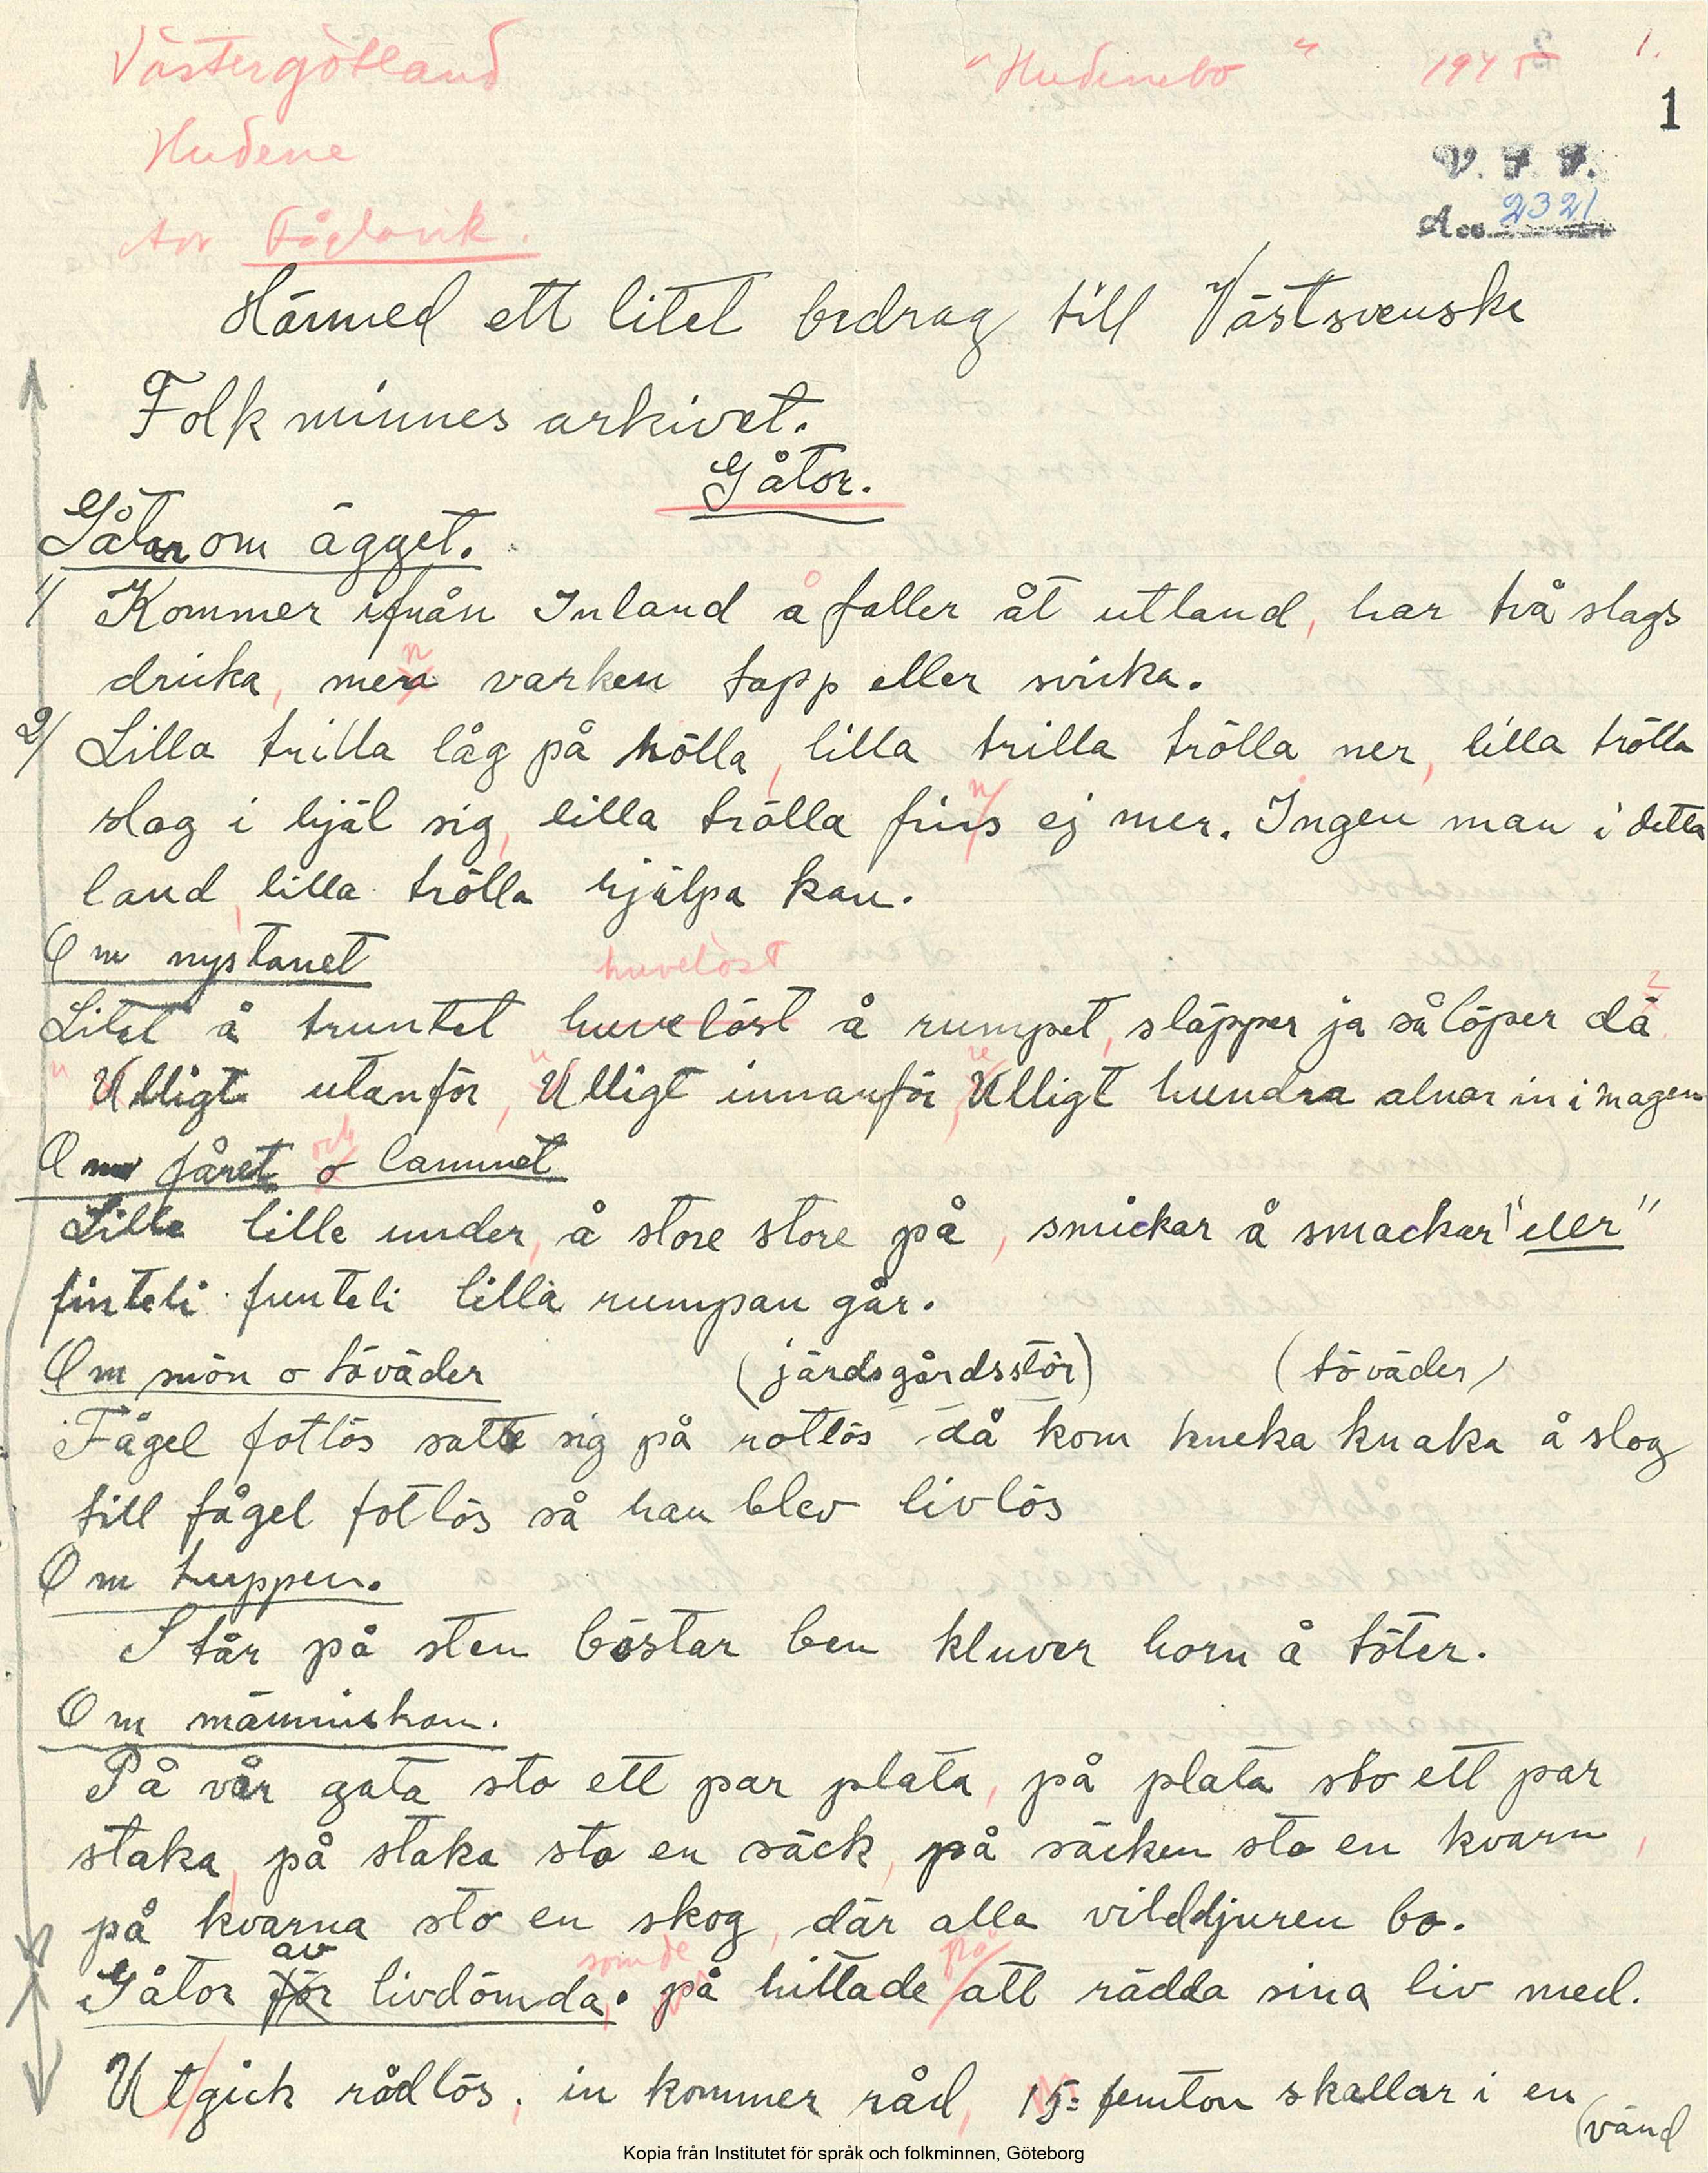 Västergötland "Hudenebo" 1945 1.
1
Hudene
V. F. F.
Acc. 2321
av
Härmed ett litet bidrag till Västsvenska
Folkminnesarkivet.
Gåtor.
Gåtor om ägget.
1/ Kommer ifrån Inland å faller åt utland, har två slags
dricka, men varken tapp eller svicka.
2/ Lilla trilla låg på hölla, lilla trilla trölla ner, lilla trölla
slog i hjäl sig, lilla trölla finns ej mer. Ingen man i detta
land, lilla trölla hjälpa kan.
Om nystanet
huvelöst
Litet å truntet huvelöst å rumpet, släpper ja så löper dä
Ulligt utanför, Ulligt innanför, Ulligt hundra alnar in i magen
och
Om fåret o lammet
Lille lille under, å store store på, smickar å smackar "eller"
finteli funteli lilla rumpan går.
Om snön o töväder (järdsgårdsstör) (töväder)
Fågel fotlös satte sig på rotlös då kom kneka knaka å slog
till fågel fotlös så han blev livlös
Om tuppen.
Står på sten böstar ben kluver horn å töter.
Om människan.
På vår gata sto ett par plata, på plata sto ett par
staka, på staka sto en säck, på säcken sto en kvarn,
på kvarna sto en skog, där alla vilddjuren bo.
av som de på
Gåtor för livdömda. på hittade att rädda sina liv med.
Ut gick rådlös, in kommer råd, 15= femton skallar i en
(vänd
Kopia från Institutet för språk och folkminnen, Göteborg